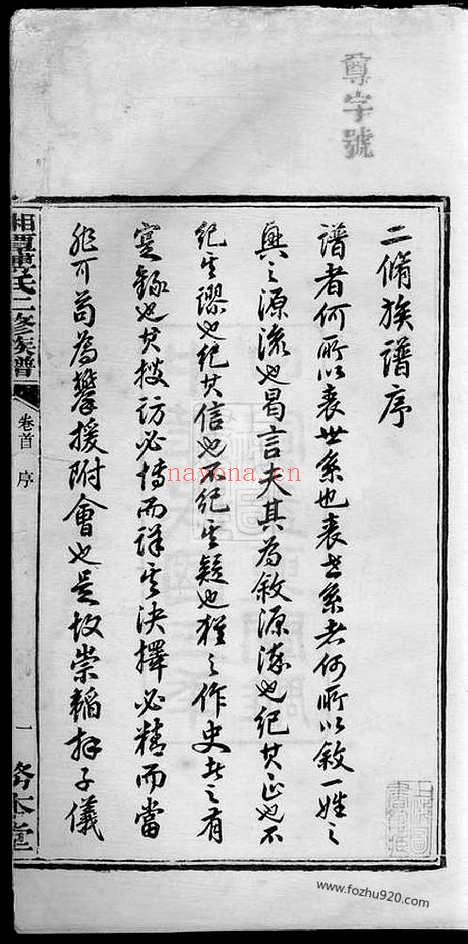 尊字號
二脩族譜序
譜者何所以表世系也表世系者何所以敘一姓之
興之源流也曷言夫其為敘源流也紀其正也不
紀其謬也紀其信也不紀其疑也猶之作史者之有
實錄也其搜訪必博而詳其決擇必精而當
非可苟為攀援附會也是故崇韜拜子儀
氏二修族譜
卷首 序
一
本堂
nayona.cn
www.fozhu920.com